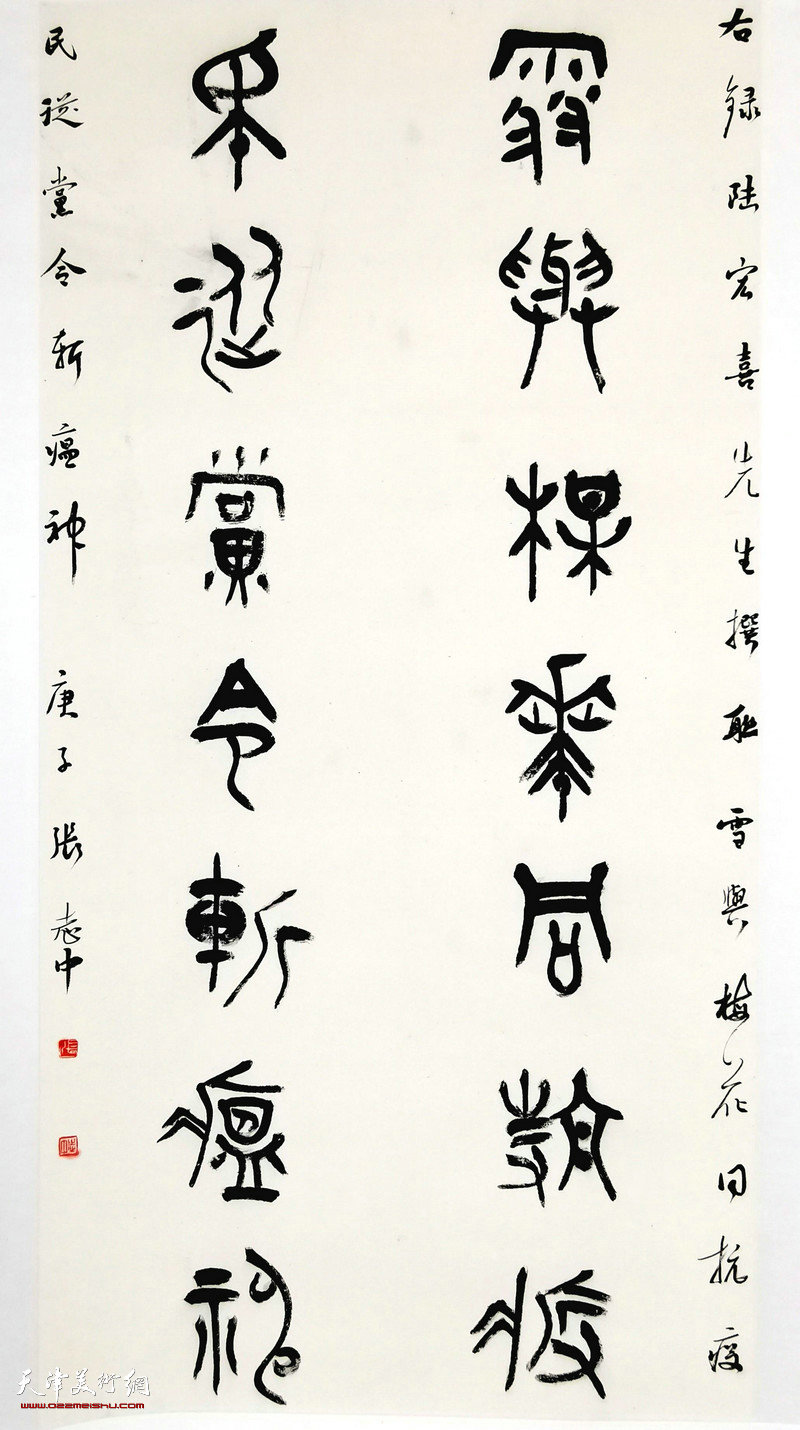 雪與梅花同抗疫
民從黨令斬瘟神
右録陆宏喜先生撰聯雪與梅花同抗疫
民從黨令斬瘟神 庚子張志中
天津美術網
www.022meishu.com